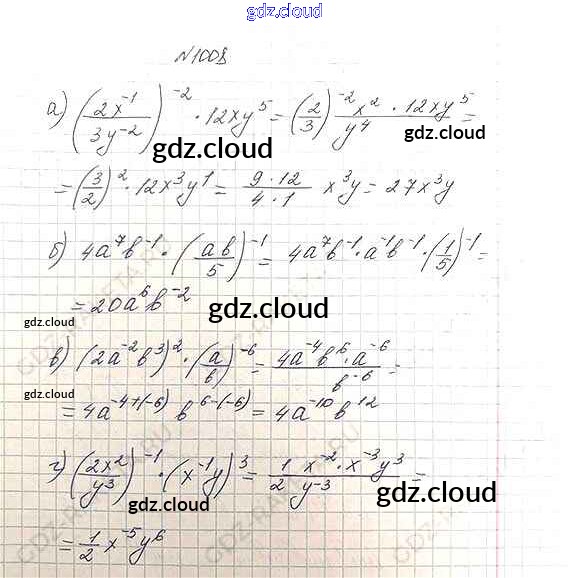 gdz.cloud
№1008
а) (2x⁻¹/3y⁻²)⁻² · 12xy⁵ = (2/3)⁻² x² · 12xy⁵/y⁴ =
gdz.cloud
gdz.cloud
= (3/2)² · 12x³y¹ = 9·12/4·1 x³y = 27x³y
б) 4a⁷b⁻¹ · (ab/5)⁻¹ = 4a⁷b⁻¹ · a⁻¹b⁻¹ · (1/5)⁻¹ =
= 20a⁶b⁻²
gdz.cloud
gdz.cloud
в) (2a⁻²b³)² · (a/b)⁻⁶ = 4a⁻⁴b⁶ · a⁻⁶/b⁻⁶ =
gdz.cloud
= 4a⁻⁴⁺⁽⁻⁶⁾ b⁶⁻⁽⁻⁶⁾ = 4a⁻¹⁰b¹²
г) (2x²/y³)⁻¹ · (x⁻¹y)³ = 1/2 x⁻² · x⁻³y³/y⁻³ =
gdz.cloud
gdz.cloud
= 1/2 x⁻⁵y⁶